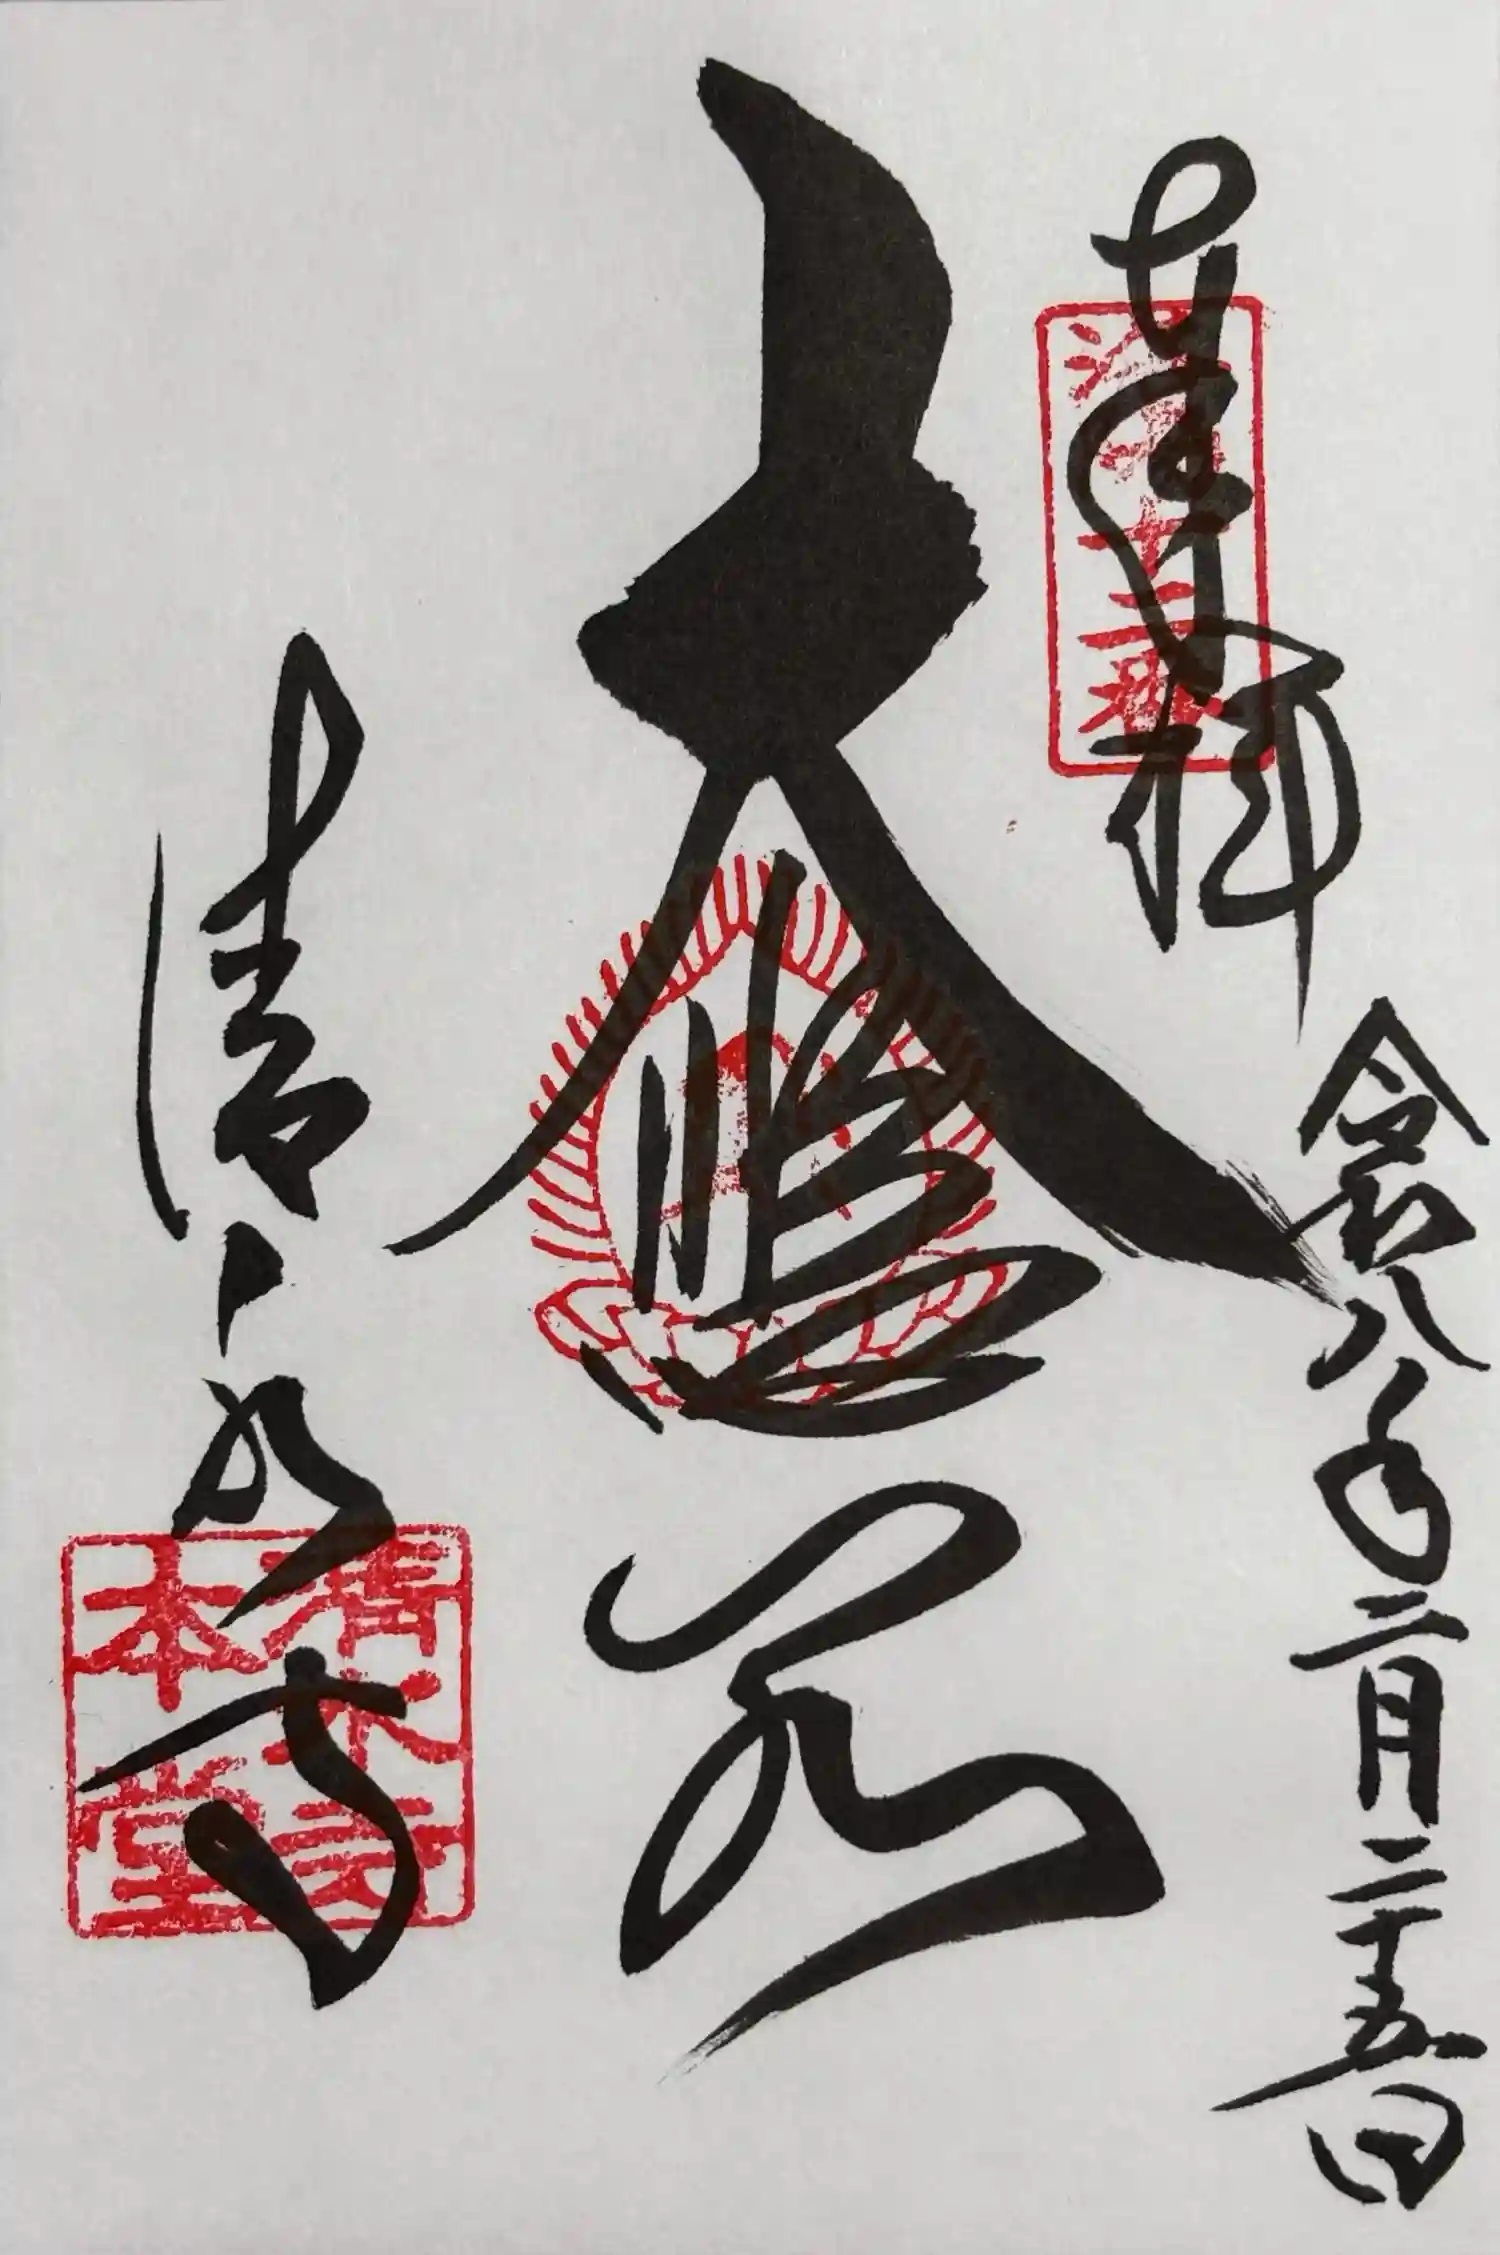 奉拝
洛陽十二番
令和八年二月二十五日
大悲閣
清水寺
清水寺
本堂